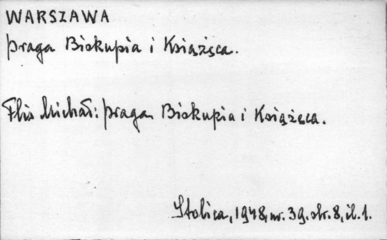 WARSZAWA
Praga Biskupia i Książęca.
Flis Michał: Praga Biskupia i Książęca.
Stolica, 1948, nr. 39. str. 8, il. 1.